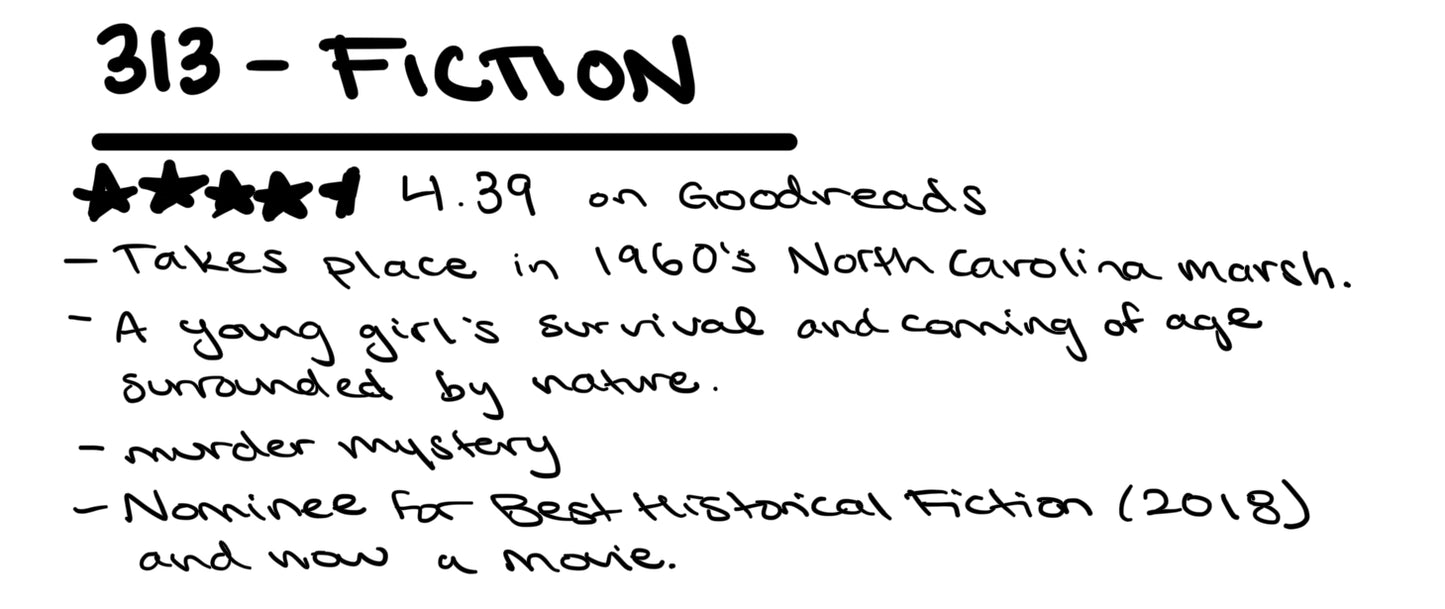 313 - FICTION
4.39 on Goodreads
- Takes place in 1960's North Carolina marsh.
- A young girl's survival and coming of age
surrounded by nature.
- murder mystery
- Nominee for Best Historical Fiction (2018)
and now a movie.